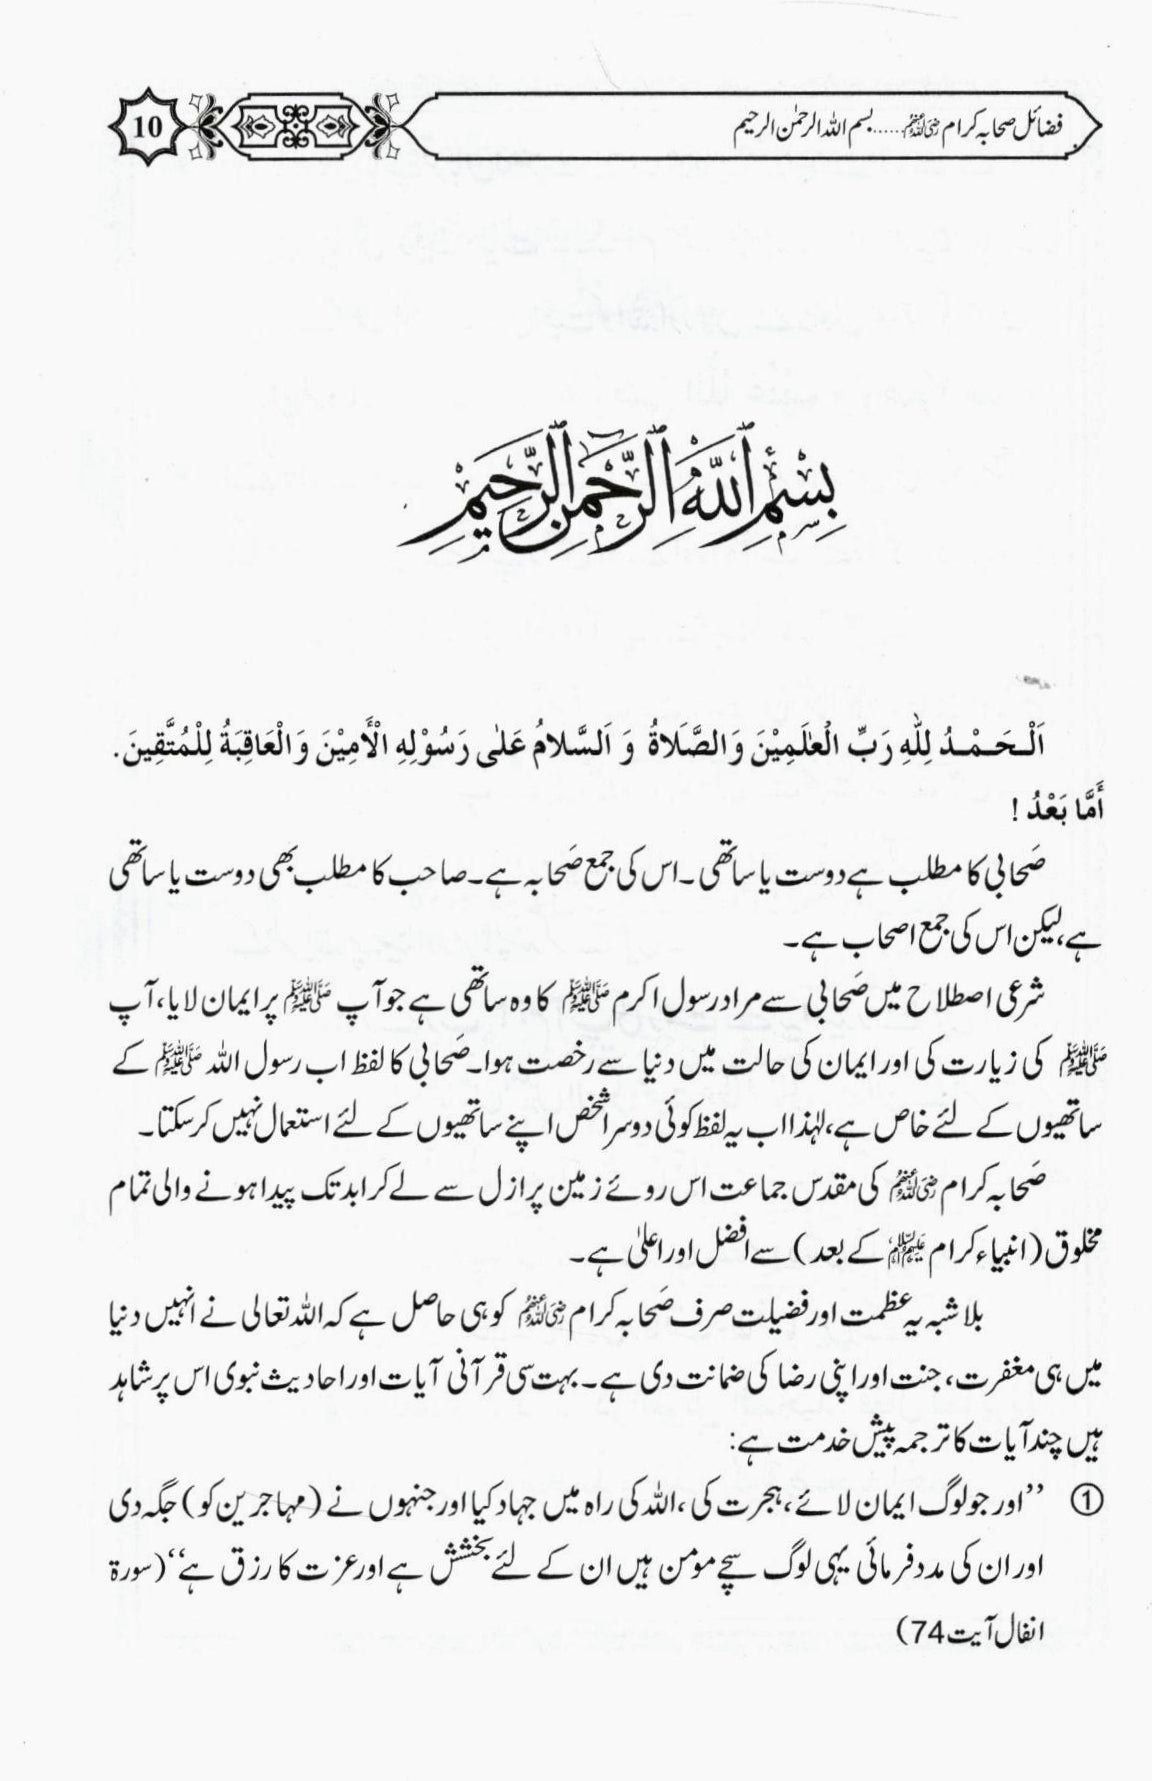 فضائل صحابہ کرام رضی اللہ عنہم……بسم اللہ الرحمٰن الرحیم
10
بِسْمِ ٱللَّهِ ٱلرَّحْمَٰنِ ٱلرَّحِيمِ
اَلْـحَـمْـدُ لِلّٰهِ رَبِّ الْعٰلَمِيْنَ وَالصَّلَاةُ وَ اَلسَّلامُ عَلٰى رَسُوْلِهِ الْأَمِيْنَ وَالْعَاقِبَةُ لِلْمُتَّقِينَ.
أَمَّا بَعْدُ !
صَحابی کا مطلب ہے دوست یا ساتھی۔ اس کی جمع صَحابہ ہے۔ صاحب کا مطلب بھی دوست یا ساتھی
ہے، لیکن اس کی جمع اصحاب ہے۔
شرعی اصطلاح میں صَحابی سے مراد رسول اکرم ﷺ کا وہ ساتھی ہے جو آپ ﷺ پر ایمان لایا، آپ
ﷺ کی زیارت کی اور ایمان کی حالت میں دنیا سے رخصت ہوا۔ صَحابی کا لفظ اب رسول اللہ ﷺ کے
ساتھیوں کے لئے خاص ہے، لہٰذا اب یہ لفظ کوئی دوسرا شخص اپنے ساتھیوں کے لئے استعمال نہیں کر سکتا۔
صَحابہ کرام رضی اللہ عنہم کی مقدس جماعت اس روئے زمین پر ازل سے لے کر ابد تک پیدا ہونے والی تمام
مخلوق (انبیاء کرام علیہم السلام کے بعد) سے افضل اور اعلیٰ ہے۔
بلا شبہ یہ عظمت اور فضیلت صرف صَحابہ کرام رضی اللہ عنہم کو ہی حاصل ہے کہ اللہ تعالی نے انہیں دنیا
میں ہی مغفرت، جنت اور اپنی رضا کی ضمانت دی ہے۔ بہت سی قرآنی آیات اور احادیث نبوی اس پر شاہد
ہیں چند آیات کا ترجمہ پیش خدمت ہے:
① ’’اور جو لوگ ایمان لائے، ہجرت کی، اللہ کی راہ میں جہاد کیا اور جنہوں نے (مہاجرین کو) جگہ دی
اور ان کی مدد فرمائی یہی لوگ سچے مومن ہیں ان کے لئے بخشش ہے اور عزت کا رزق ہے‘‘ (سورۃ
انفال آیت 74)